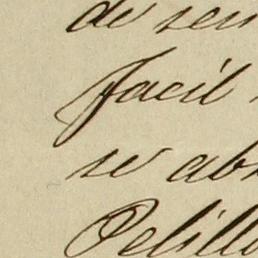 de sen
facil
se abr
Pelillo